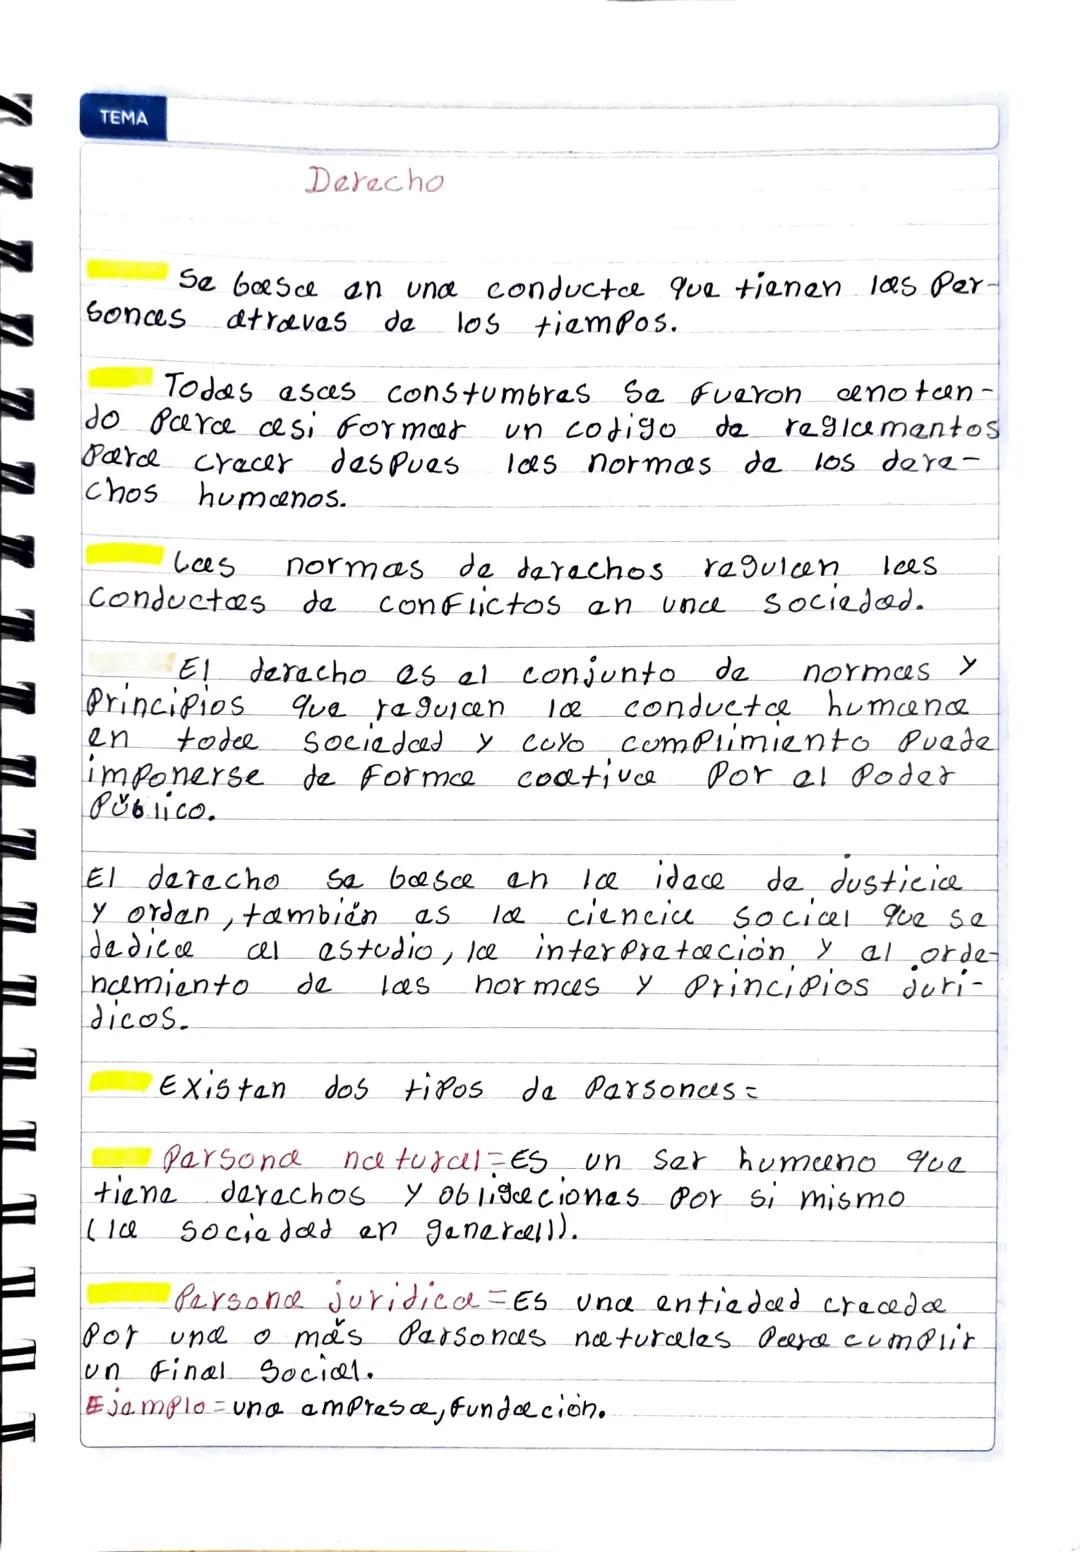 TEMA
Derecho
Se basa en una conducta que tienen las Per-
sonas atraves de los tiempos.
Todas esas constumbres se fueron anotan-
do para asi formar un codigo de reglamentos
para crear despues las normas de los dere-
chos humanos.
Las normas de derechos regulan las
conductas de conflictos en una sociedad.
El derecho es el conjunto de normas y
Principios que regulan la conducta humana
en toda sociedad y cuyo cumplimiento puede
imponerse de forma coativa por el Poder
Público.
El derecho se basa en la idea de justicia
y orden, también es la ciencia social que se
dedica al estudio, la interpretación y al orde-
namiento de las normas y Principios juri-
dicos.
Existen dos tipos de Personas=
Persona natural=Es un ser humano que
tiene derechos y obligaciones por si mismo
(la sociedad en general)).
Persona juridica=Es una entiedad creada
por una o más Personas naturales para cumplir
un final social.
Ejemplo=una empresa, fundación.